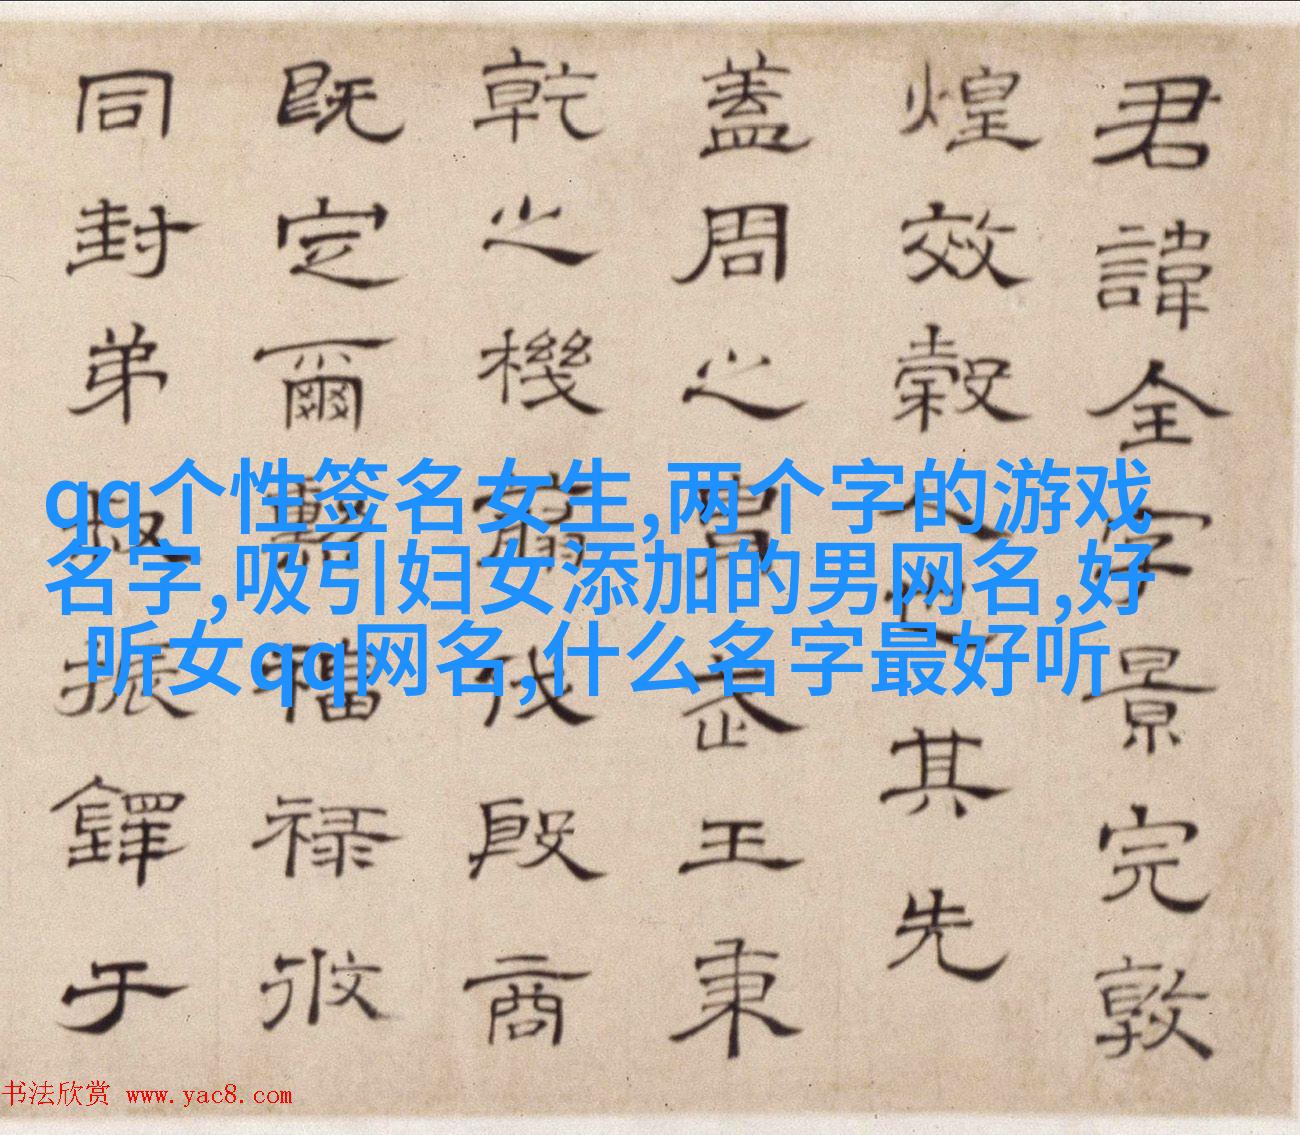 君諱全字景完敦
煌效穀人也其先
蓋周之胄武王秉
乾之機翦伐殷商
既定爾勲福祿攸
同封弟叔振鐸于
qq个性签名女生,两个字的游戏
名字,吸引妇女添加的男网名,好
听女qq网名,什么名字最好听
书法欣赏 www.yac8.com